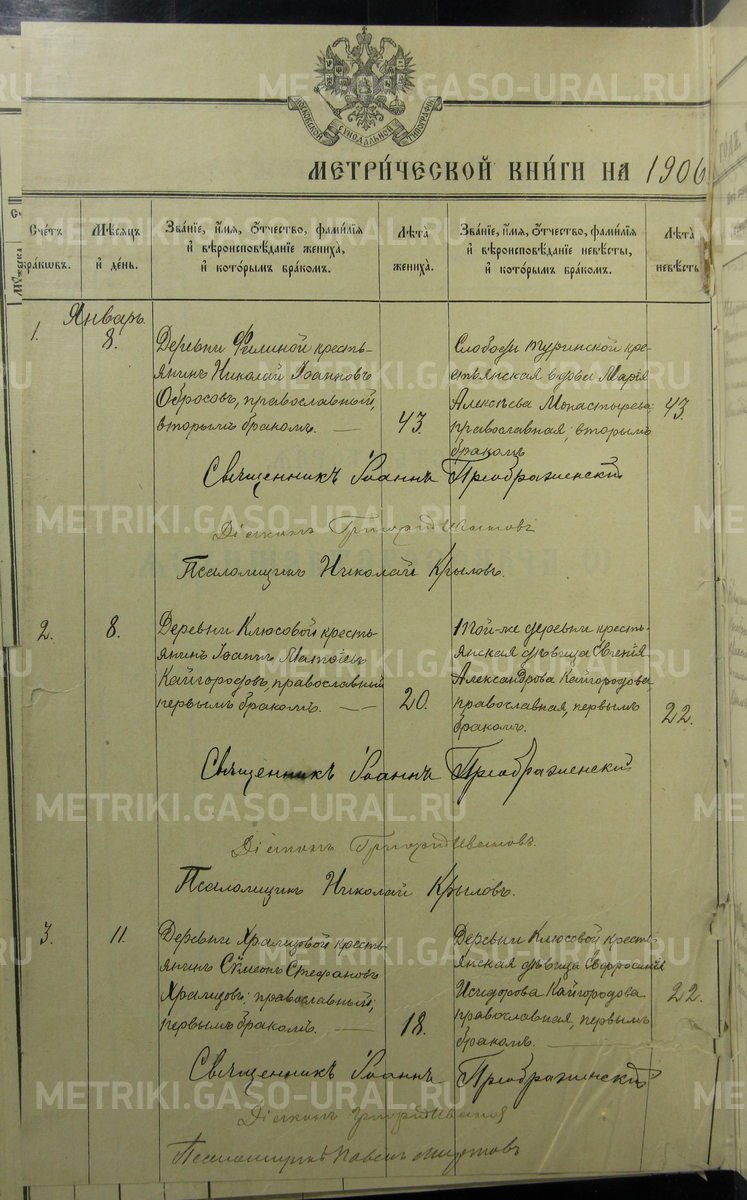 METRIKI.GASO-URAL.RU
МОСКОВСКОЙ СѴНОДАЛЬНОЙ ТИПОГРАФІИ
МЕТРИ́ЧЕСКОЙ КНИ́ГИ НА 1906
Сче́тъ бра́кѡвъ.
Мѣ́сяцъ и҆ де́нь.
Зва́нїе, и҆́мя, ѻ҆́тчество, фамилі́я и҆ вѣроисповѣ́данїе жениха̀, и҆ кото́рымъ бра́комъ.
Лѣ́та жениха̀.
Зва́нїе, и҆́мя, ѻ҆́тчество, фамилі́я и҆ вѣроисповѣ́данїе невѣ́сты, и҆ кото́рымъ бра́комъ.
Лѣ́та невѣ́сты
Январь
1.
8.
Деревни кресть-
янинъ Николай Іоанновъ
Обросовъ, православный,
вторымъ бракомъ. —
43.
Слободы Туринской кре-
стьянская вдова Марія
Алексѣева Монастырева
православная, вторымъ
бракомъ
43
Священникъ Іоаннъ Преображенскій
Діаконъ Григорій Ивановъ
Псаломщикъ Николай Крыловъ.
2.
8.
Деревни Клюсовой кресть-
янинъ Іоаннъ
Кайгородовъ, православный
первымъ бракомъ. —
20.
Той-же деревни кресть-
янская дѣвица Евгенія
Александрова Кайгородова,
православная, первымъ
бракомъ.
22.
Священникъ Іоаннъ Преображенскій
Діаконъ Григорій Ивановъ.
Псаломщикъ Николай Крыловъ.
3.
11.
Деревни Храмцовой кресть-
янинъ Сѵмеонъ Стефановъ
Храмцовъ, православный,
первымъ бракомъ. —
18.
Деревни Клюсовой кресть-
янская дѣвица Евфросинія
Исидорова Кайгородова
православная, первымъ
бракомъ.
22.
Священникъ Іоаннъ Преображенскій
Діаконъ Григорій Ивановъ
Псаломщикъ Павелъ